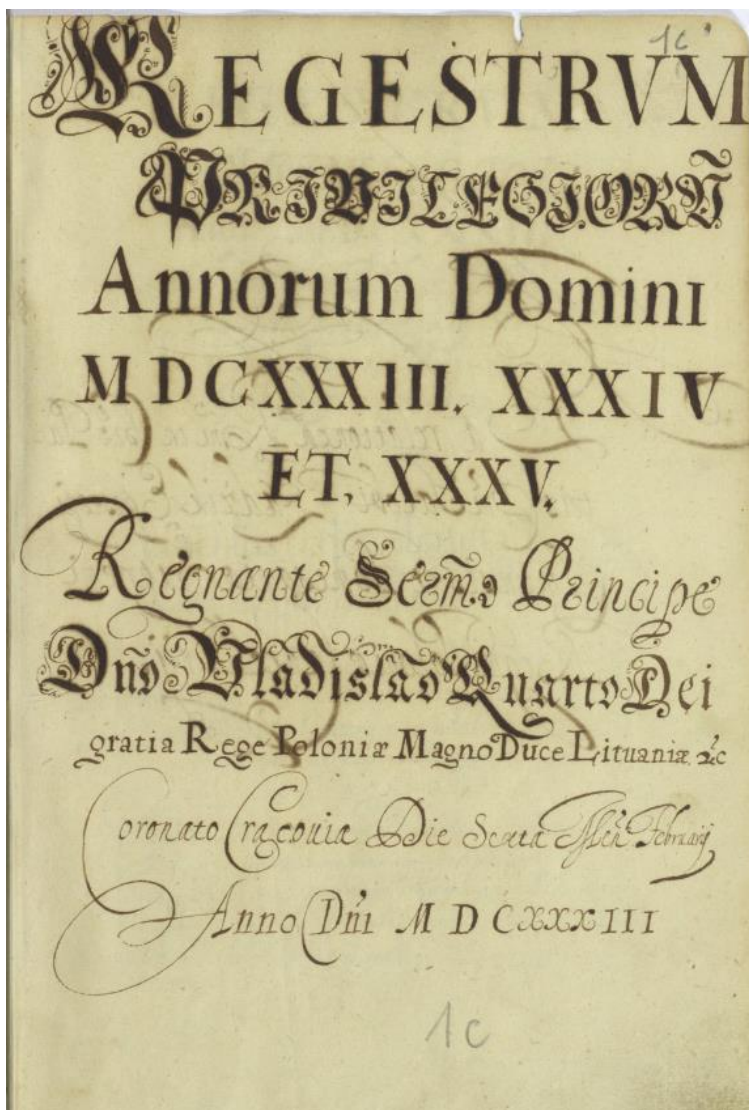 1c
REGESTRVM
PRIVILEGIORŨ
Annorum Domini
MDCXXXIII. XXXIV
ET. XXXV.
Regnante Serm̃o Principe
Dño Vladislao Quarto Dei
gratia Rege Poloniæ Magno Duce Lituaniæ &c
Coronato Cracoviæ Die Sexta Februarij
Anno Dñi MDCXXXIII
1c